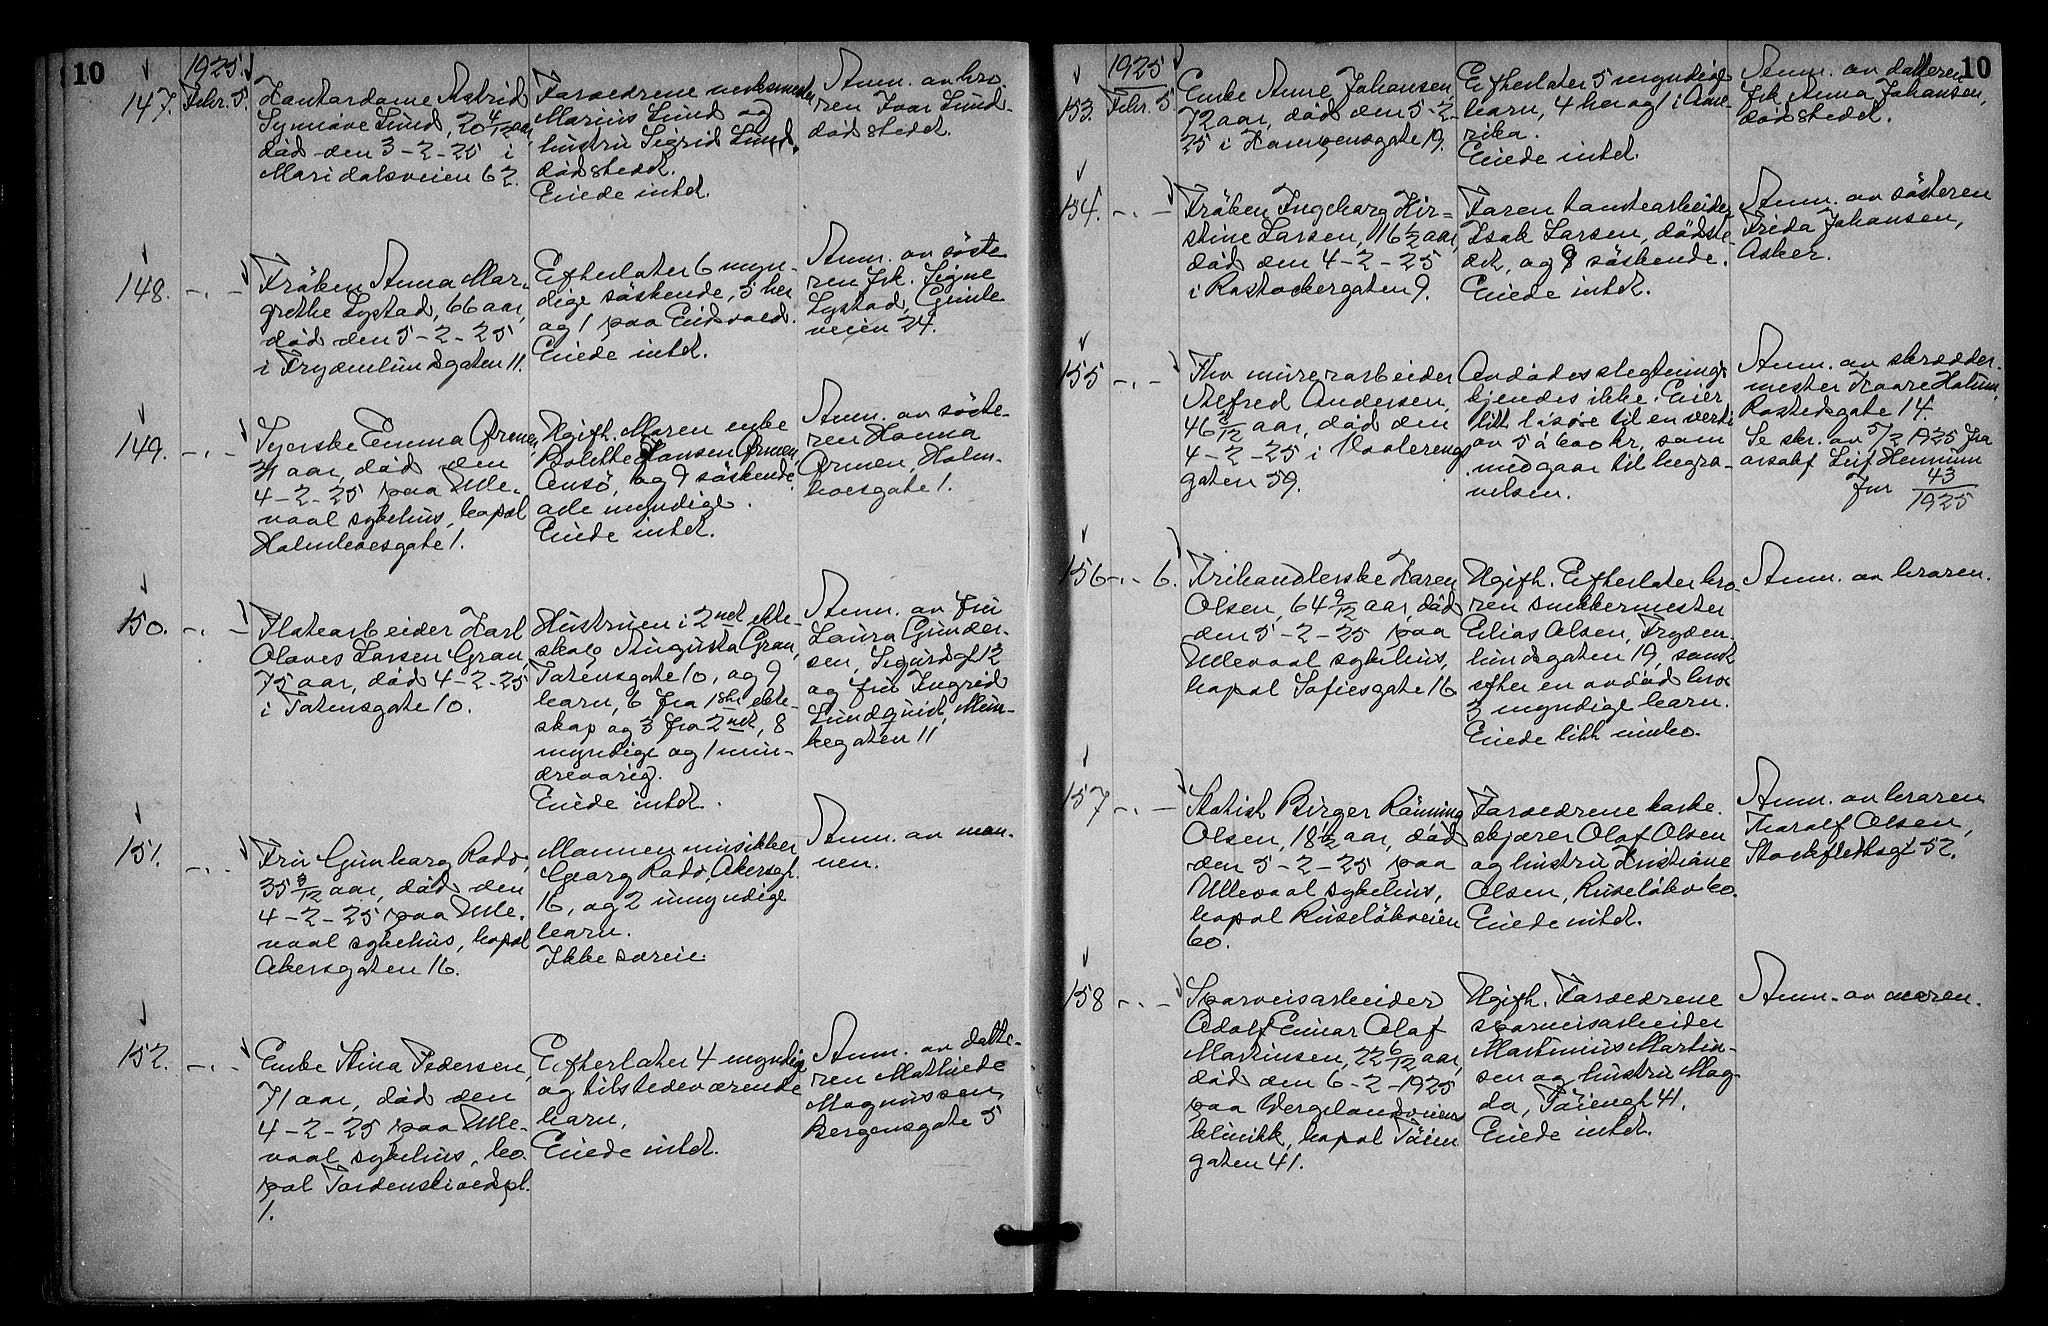 10
1925.
147. Febr. 5.
Kontordame Astrid
Synnøve Lund, 20 4/12 aar,
død den 3-2-25 i
Maridalsveien 62.
Foreldrene verksmester
Marius Lund og
hustru Sigrid Lund,
dødsstedet.
Eiede intet.
Anm. av bro-
ren Ivar Lund
dødsstedet.
148. -.-
Frøken Anna Mar-
grethe Lystad, 66 aar,
død den 5-2-25
i Frydenlundsgaten 11.
Efterlater 6 myn-
dige søskende, 5 her
og 1 paa Eidsvold.
Eiede intet.
Anm. av søste-
ren frk. Signe
Lystad, Gimle
veien 24.
149. -.-
Syerske Emma Ørmen,
31 aar, død den
4-2-25 paa Ulle-
vaal sykehus, bopæl
Holmboesgate 1.
Ugift. Moren enke
Bolette Jansen Ørmen,
Onsø, og 9 søskende
alle myndige.
Eiede intet.
Anm. av søste-
ren Hanna
Ørmen, Holm-
boesgate 1.
150. -.-
Platearbeider Karl
Olaves Larsen Gran,
75 aar, død 4-2-25
i Tatensgate 10.
Hustruen i 2net ekte-
skap Augusta Gran,
Tatensgate 10, og 9
barn, 6 fra 1ste ekte-
skap og 3 fra 2net, 8
myndige og 1 min-
dreaarig.
Eiede intet.
Anm. av fru
Laura Gunder-
sen, Sigurdsgt 12
og fru Ingrid
Lundquist, Mein-
kegaten 11
151. -.-
Fru Gunborg Rado,
35 9/12 aar, død den
4-2-25 paa Ulle-
vaal sykehus, bopæl
Akersgaten 16.
Mannen musikker
Georg Rado, Akersgt.
16, og 2 umyndige
barn.
Ikke særeie.
Anm. av man-
nen.
152. -.-
Enke Stina Pedersen,
71 aar, død den
4-2-25 paa Ulle-
vaal sykehus, bo-
pæl Tordenskioldspl.
1.
Efterlater 4 myndige
og tilstedeværende
barn.
Eiede intet.
Anm. av datte-
ren Mathilde
Magnussen,
Bergensgate 5
10
1925
153. Febr. 5.
Enke Anne Johansen,
72 aar, død den 5-2-
25 i Kampensgate 19.
Efterlater 5 myndige
barn, 4 her og 1 i Ame-
rika.
Eiede intet.
Anm. av datteren
frk. Anna Johansen,
dødsstedet.
154. -.-
Frøken Ingeborg Kir-
stine Larsen, 16 6/12 aar,
død den 4-2-25
i Rostockergaten 9.
Faren tomtearbeider
Isak Larsen, dødste-
det, og 9 søskende.
Eiede intet.
Anm. av søsteren
Frida Johansen,
Asker.
155 -.-
Fhv murerarbeider
Alfred Andersen,
46 2/12 aar, død den
4-2-25 i Vaalereng
gaten 59.
Avdødes slegtninge
kjendes ikke. Eier
litt løsøre til en verdi
av 5 à 600 kr, som
medgaar til begra-
velsen.
Anm. av skrædder-
mester Kaare Holum,
Rostedsgate 14.
Se skr. av 5/2 1925 fra
orsakf Leif Hennum
Jnr 43/1925
156 -.- 6.
Frihandlerske Karen
Olsen, 64 9/12 aar, død
den 5-2-25 paa
Ullevaal sykehus,
bopæl Sofiesgate 16
Ugift. Efterlater bro-
ren snekkermester
Elias Olsen, Fryden-
lundsgaten 19, samt
efter en avdød bror
3 myndige barn.
Eiede litt innbo.
Anm. av broren.
157 -.-
Statist Birger Rønning
Olsen, 18 1/12 aar, død
den 5-2-25 paa
Ullevaal sykehus,
bopæl Ruseløkveien
60.
Foreldrene korke-
skjærer Olaf Olsen
og hustru Kristiane
Olsen, Ruseløkv 60.
Eiede intet.
Anm. av broren
Thoralf Olsen,
Stockflethsgt 52.
158 -.-
Sporveisarbeider
Adolf Einar Olaf
Martinsen, 22 6/12 aar,
død den 6-2-1925
paa Wergelandsveiens
klinikk, bopæl Tøien
gaten 41.
Ugift. Foreldrene
sporveisarbeider
Martinius Martin-
sen og hustru Mag-
da, Tøiengt 41.
Eiede intet.
Anm. av moren.